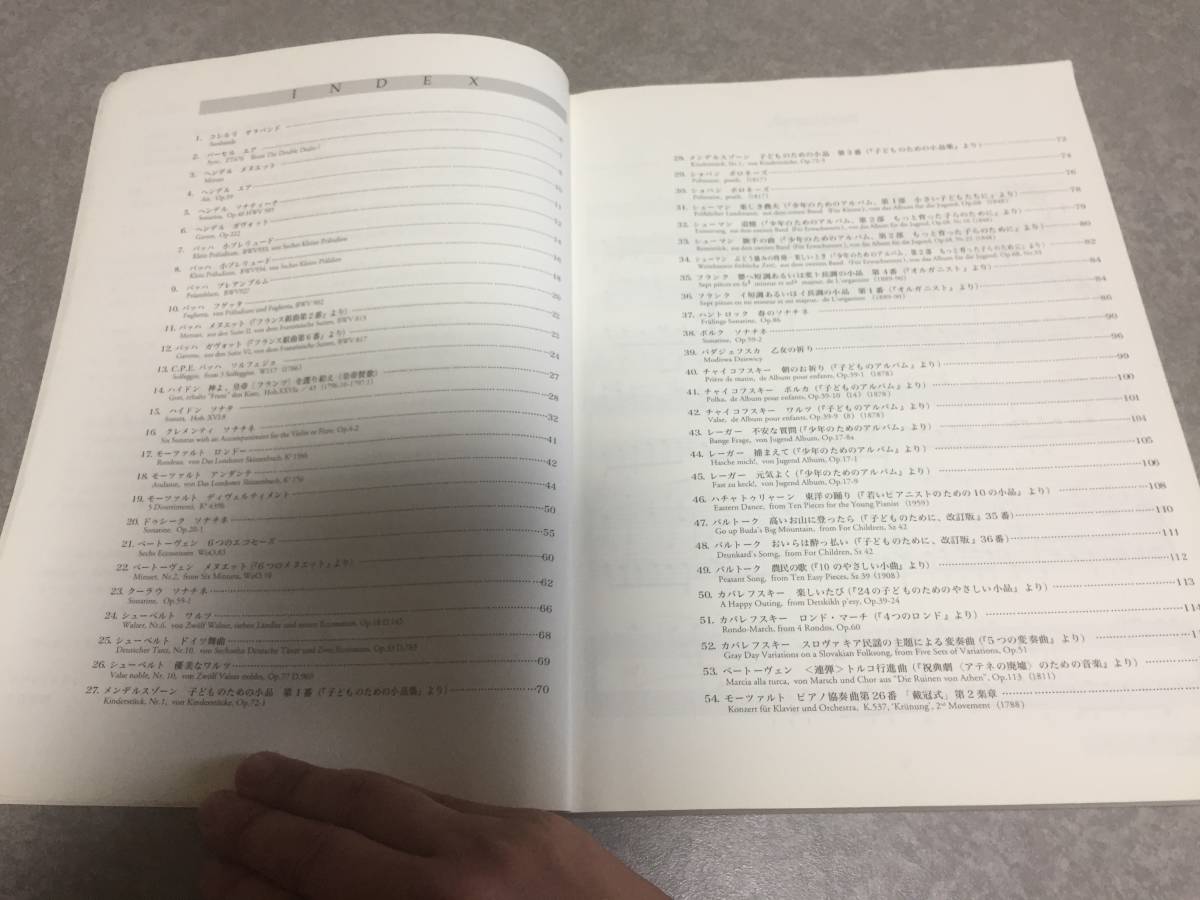 INDEX
1. コレルリ サラバンド
Sarabanda
2. パーセル エア
3. ヘンデル メヌエット
Menuet
4. ヘンデル エア
Air,
5. ヘンデル ソナティーナ
Sonatina,
6. ヘンデル ガヴォット 12
Gavotte,
7. バッハ 小プレリュード 14
Klein Präludium, BWV933, von Sechs Kleine Präludien
8. バッハ 小プレリュード 16
Klein Präludium, BWV934, von Sechs Kleine Präludien
9. バッハ プレアンブルム 18
Präambulum, BWV927
10. バッハ フゲッタ 20
Fughetta, von Präludium und Fughetta, BWV 902
11. バッハ メヌエット(『フランス組曲第2番』より) 22
Menuet, aus den Suite II, von den Französische Suiten, BWV 813
12. バッハ ガヴォット(『フランス組曲第6番』より) 24
Gavotte, aus den Suite VI, von den Französische Suiten, BWV 817
13. C.P.E. バッハ ソルフェジョ 27
Solfeggio, from 3 Solfeggio, W117 (1766)
14. ハイドン 神よ、皇帝〔フランツ〕を護り給え(皇帝賛歌) 28
15. ハイドン ソナタ 32
Sonata, Hob. XVI:8
16. クレメンティ ソナチネ 41
Six Sonatas with an Accompaniment for the Violin or Flute, Op.4-2
17. モーツァルト ロンドー 42
Rondeau, von Das Londoner Skizzenbuch,
18. モーツァルト アンダンテ 44
Andante, von Das Londoner Skizzenbuch,
19. モーツァルト ディヴェルティメント 50
5 Divertimenti, K⁶ 439b
20. ドゥシーク ソナチネ 55
Sonatine, Op.20-1
21. ベートーヴェン 6つのエコセーズ 60
Sechs Ecossaisen WoO.83
22. ベートーヴェン メヌエット(『6つのメヌエット』より) 62
Minuet, Nr.2, from Six Minuets, WoO.10
23. クーラウ ソナチネ 66
Sonatine, Op.59-1
24. シューベルト ワルツ 68
Walzer, Nr.6, von Zwölf Walzer, sieben Ländler und neuen Ecossaisen, Op.18 D.145
25. シューベルト ドイツ舞曲 69
Deutscher Tanz, Nr.10, von Sechzehn Deutsche Tänze und Zwei Ecossaisen, Op.33 D.783
26. シューベルト 優美なワルツ
Valse noble, Nr. 10, von Zwölf Valses nobles, Op.77 D.969
27. メンデルスゾーン 子どものための小品 第1番(『子どものための小品集』より) 70
Kinderstück, Nr.1, von Kinderstücke, Op.72-1
28. メンデルスゾーン 子どものための小品 第3番(『子どものための小品集』より) 73
Kinderstück, Nr.3, von Kinderstücke, Op.72-3
29. ショパン ポロネーズ 74
Polonaise, posth. (1817)
30. ショパン ポロネーズ 76
Polonaise, posth. (1817)
31. シューマン 楽しき農夫(『少年のためのアルバム、第1部 小さい子どもたちに』より) 78
32. シューマン 追憶(『少年のためのアルバム、第2部 もっと育った子らのために』より) 79
33. シューマン 騎手の曲(『少年のためのアルバム、第2部 もっと育った子らのために』より) 80
34. シューマン ぶどう摘みの時期−楽しいとき(『少年のためのアルバム、第2部 もっと育った子らのために』より) 82
35. フランク 嬰ヘ短調あるいは変ト長調の小品 第4番(『オルガニスト』より) 84
36. フランク イ短調あるいはイ長調の小品 第1番(『オルガニスト』より) 84
37. ハントロック 春のソナチネ 86
Frülings Sonatine, Op.86
38. ポルク ソナチネ 90
Sonatine, Op.59-2
39. バダジェフスカ 乙女の祈り 96
Modlitwa Dziewicy
40. チャイコフスキー 朝のお祈り(『子どものアルバム』より) 99
Prière de matin, de Album pour enfants, Op.39-1 (1878)
41. チャイコフスキー ポルカ(『子どものアルバム』より) 100
Polka, de Album pour enfants, Op.39-10 〔14〕(1878)
42. チャイコフスキー ワルツ(『子どものアルバム』より) 101
Valse, de Album pour enfants, Op.39-9 〔8〕(1878)
43. レーガー 不安な質問(『少年のためのアルバム』より) 104
Bange Frage, von Jugend Album, Op.17-8a
44. レーガー 捕まえて(『少年のためのアルバム』より) 105
Hasche mich!, von Jugend Album, Op.17-1
45. レーガー 元気よく(『少年のためのアルバム』より) 106
Fast zu keck!, von Jugend Album, Op.17-9
46. ハチャトゥリャーン 東洋の踊り(『若いピアニストのための10の小品』より) 108
Eastern Dance, from Ten Pieces for the Young Pianist (1959)
47. バルトーク 高いお山に登ったら(『子どものために、改訂版』35番) 110
Go up Buda's Big Mountain, from For Children, Sz 42
48. バルトーク おいらは酔っ払い(『子どものために、改訂版』36番) 111
Drunkard's Somg, from For Children, Sz 42
49. バルトーク 農民の歌(『10のやさしい小曲』より) 112
Peasant Song, from Ten Easy Pieces, Sz.39 (1908)
50. カバレフスキー 楽しいたび(『24の子どものためのやさしい小品』より) 113
A Happy Outing, from Detskikh p'esy, Op.39-24
51. カバレフスキー ロンド・マーチ(『4つのロンド』より) 114
Rondo-March, from 4 Rondos, Op.60
52. カバレフスキー スロヴァキア民謡の主題による変奏曲(『5つの変奏曲』より)
Gray Day Variations on a Slovakian Folksong, from Five Sets of Variations, Op.51
53. ベートーヴェン <連弾>トルコ行進曲(『祝典劇〈アテネの廃墟〉のための音楽』より)
Marcia alla turca, von Marsch und Chor aus "Die Ruinen von Athen", Op.113 (1811)
54. モーツァルト ピアノ協奏曲第26番「戴冠式」第2楽章
Konzert für Klavier und Orchestra, K.537, 'Krünung', 2nd Movement (1788)